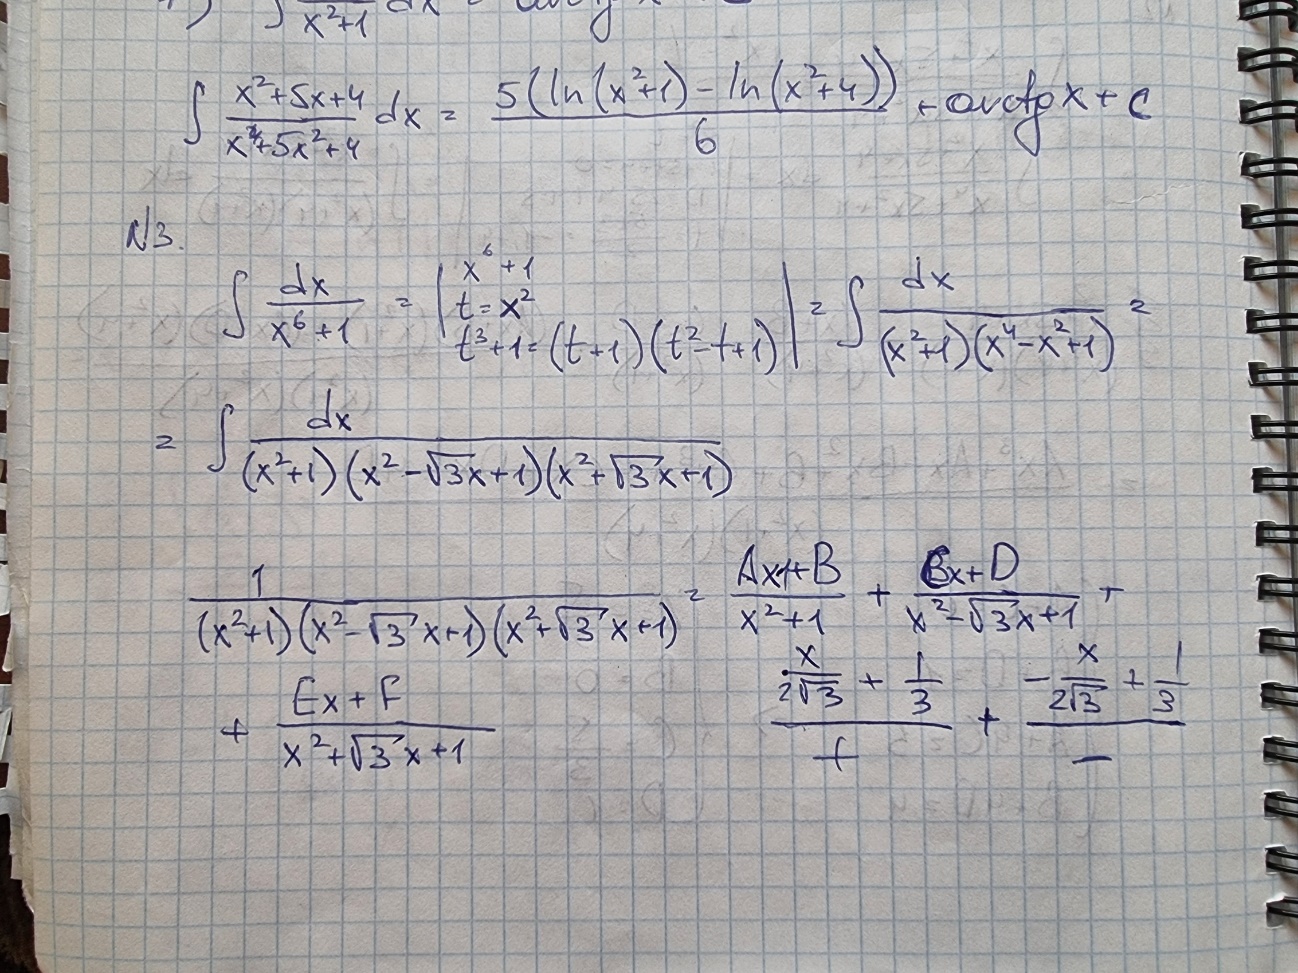 ∫ x²+1 dx
∫ (x²+5x+4)/(x⁴+5x²+4) dx = 5(ln(x²+1) - ln(x²+4))/6 + arctg x + C
N3.
∫ dx/(x⁶+1) = | x⁶+1
t = x²
t³+1 = (t+1)(t²-t+1) | = ∫ dx/((x²+1)(x⁴-x²+1)) =
= ∫ dx/((x²+1)(x²-√3x+1)(x²+√3x+1))
1/((x²+1)(x²-√3x+1)(x²+√3x+1)) = (Ax+B)/(x²+1) + (Cx+D)/(x²-√3x+1) +
+ (Ex+F)/(x²+√3x+1)
(x/(2√3) + 1/3)/+ + (-x/(2√3) + 1/3)/-